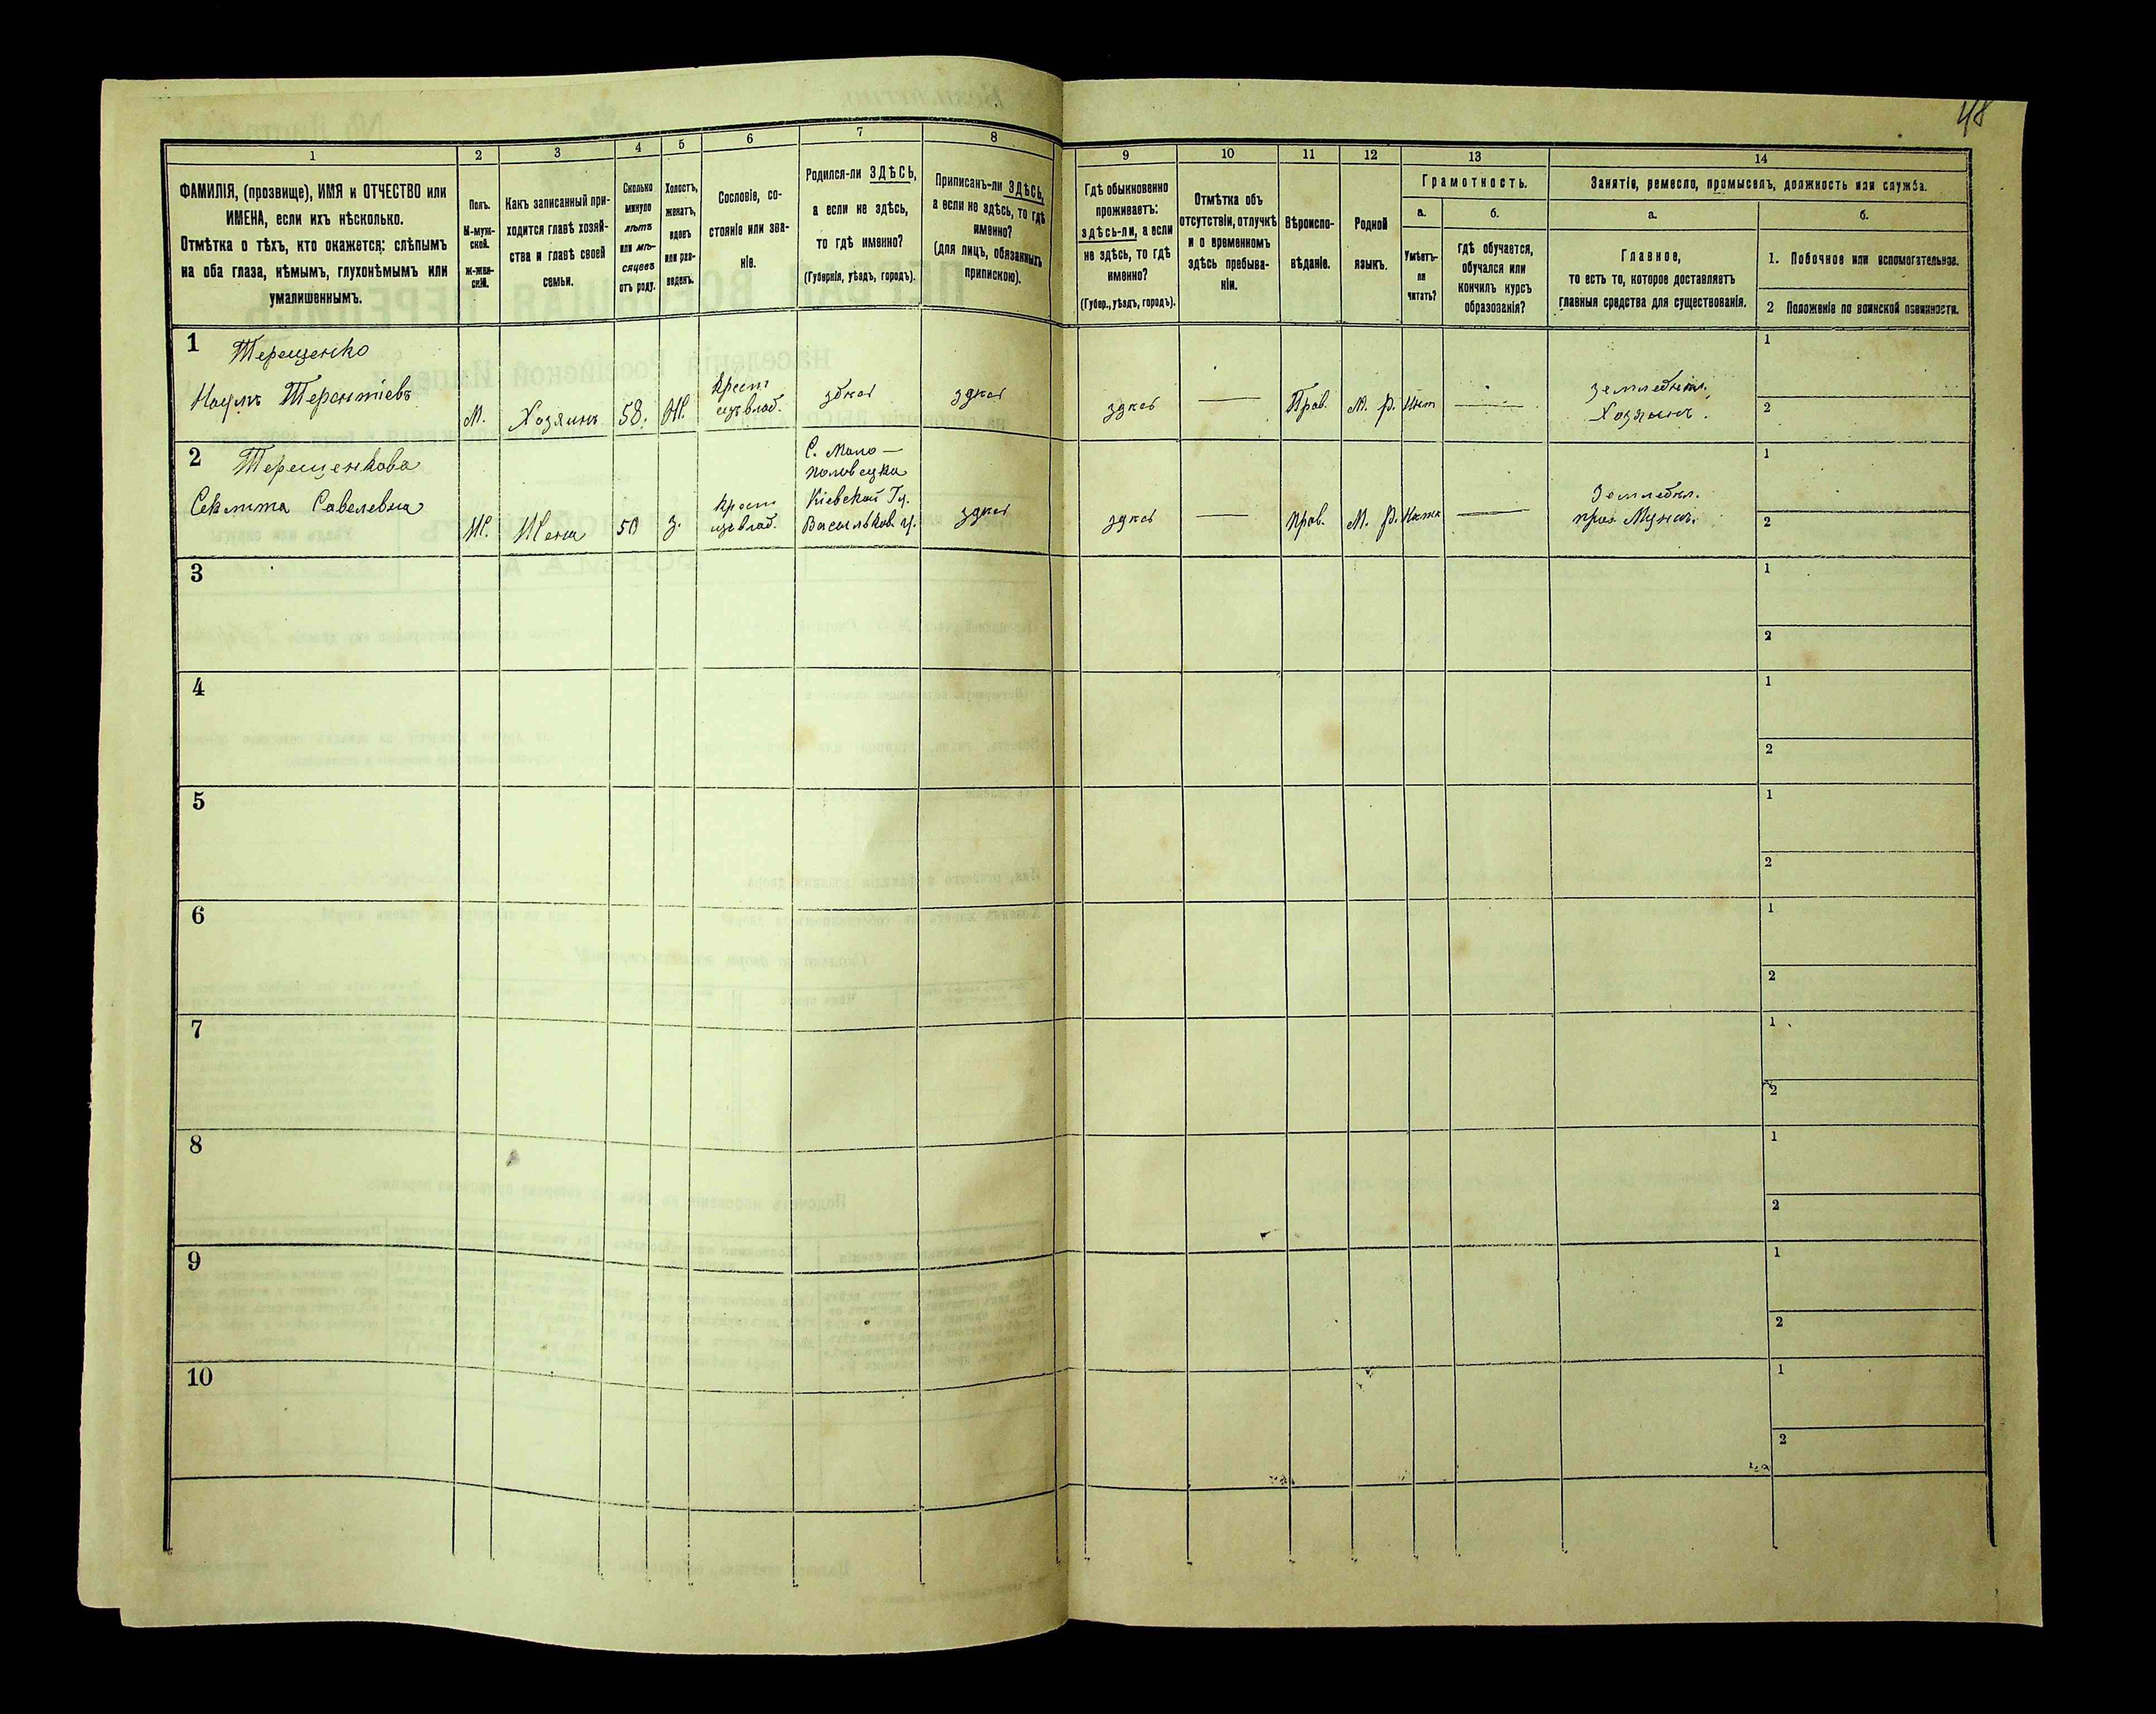 48
1
2
3
4
5
6
7
8
9
10
11
12
13
14
ФАМИЛІЯ, (прозвище), ИМЯ и ОТЧЕСТВО или
ИМЕНА, если ихъ нѣсколько.
Отмѣтка о тѣхъ, кто окажется: слѣпымъ
на оба глаза, нѣмымъ, глухонѣмымъ или
умалишеннымъ.
Полъ.
М-муж-
ской.
Ж-жен-
скій.
Какъ записанный при-
ходится главѣ хозяй-
ства и главѣ своей
семьи.
Сколько
минуло
лѣтъ
или мѣ-
сяцевъ
отъ роду.
Холостъ,
женатъ,
вдовъ
или раз-
веденъ.
Сословіе, со-
стояніе или зва-
ніе.
Родился-ли ЗДѢСЬ,
а если не здѣсь,
то гдѣ именно?
(Губернія, уѣздъ, городъ).
Приписанъ-ли ЗДѢСЬ,
а если не здѣсь, то гдѣ
именно?
(для лицъ, обязанныхъ
припискою).
Гдѣ обыкновенно
проживаетъ:
здѣсь-ли, а если
не здѣсь, то гдѣ
именно?
(Губер., уѣздъ, городъ).
Отмѣтка объ
отсутствіи, отлучкѣ
и о временномъ
здѣсь пребыва-
ніи.
Вѣроиспо-
вѣданіе.
Родной
языкъ.
Грамотность.
а.
Умѣетъ-
ли
читать?
б.
гдѣ обучается,
обучался или
кончилъ курсъ
образованія?
Занятіе, ремесло, промыселъ, должность или служба.
а.
Главное,
то есть то, которое доставляетъ
главныя средства для существованія.
б.
1. Побочное или вспомогательное.
2 Положеніе по воинской повинности.
1 Терещенко
Наумъ Терентіевъ
М.
Хозяинъ
58.
Ж.
Крест
изъ влад.
здѣсь
здѣсь
здѣсь
—
Прав.
М. р.
Нѣт
—
Земледѣл.
Хозяинъ.
1
2
2 Терещенкова
Савелевна
Ж.
Жена
50
З.
Крест
изъ влад.
С. Мало-
половецка
Кіевской Гу.
Васильков. у.
здѣсь
здѣсь
—
Прав.
М. р.
Нѣтъ
—
Земледѣл.
при Мужѣ.
1
2
3
1
2
4
1
2
5
1
2
6
1
2
7
1
2
8
1
2
9
1
2
10
1
2